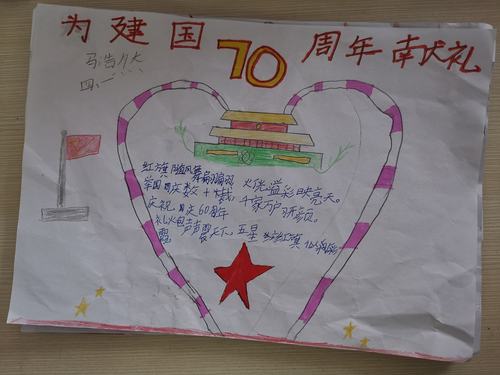 为建国70周年献礼
马浩然
四、一
红旗随风舞翩翩 火花溢彩映亮天。
举国同庆数十载, 千家万户齐欢颜。
庆祝国庆60周年
礼火包声声震天下, 五星 红旗
霞